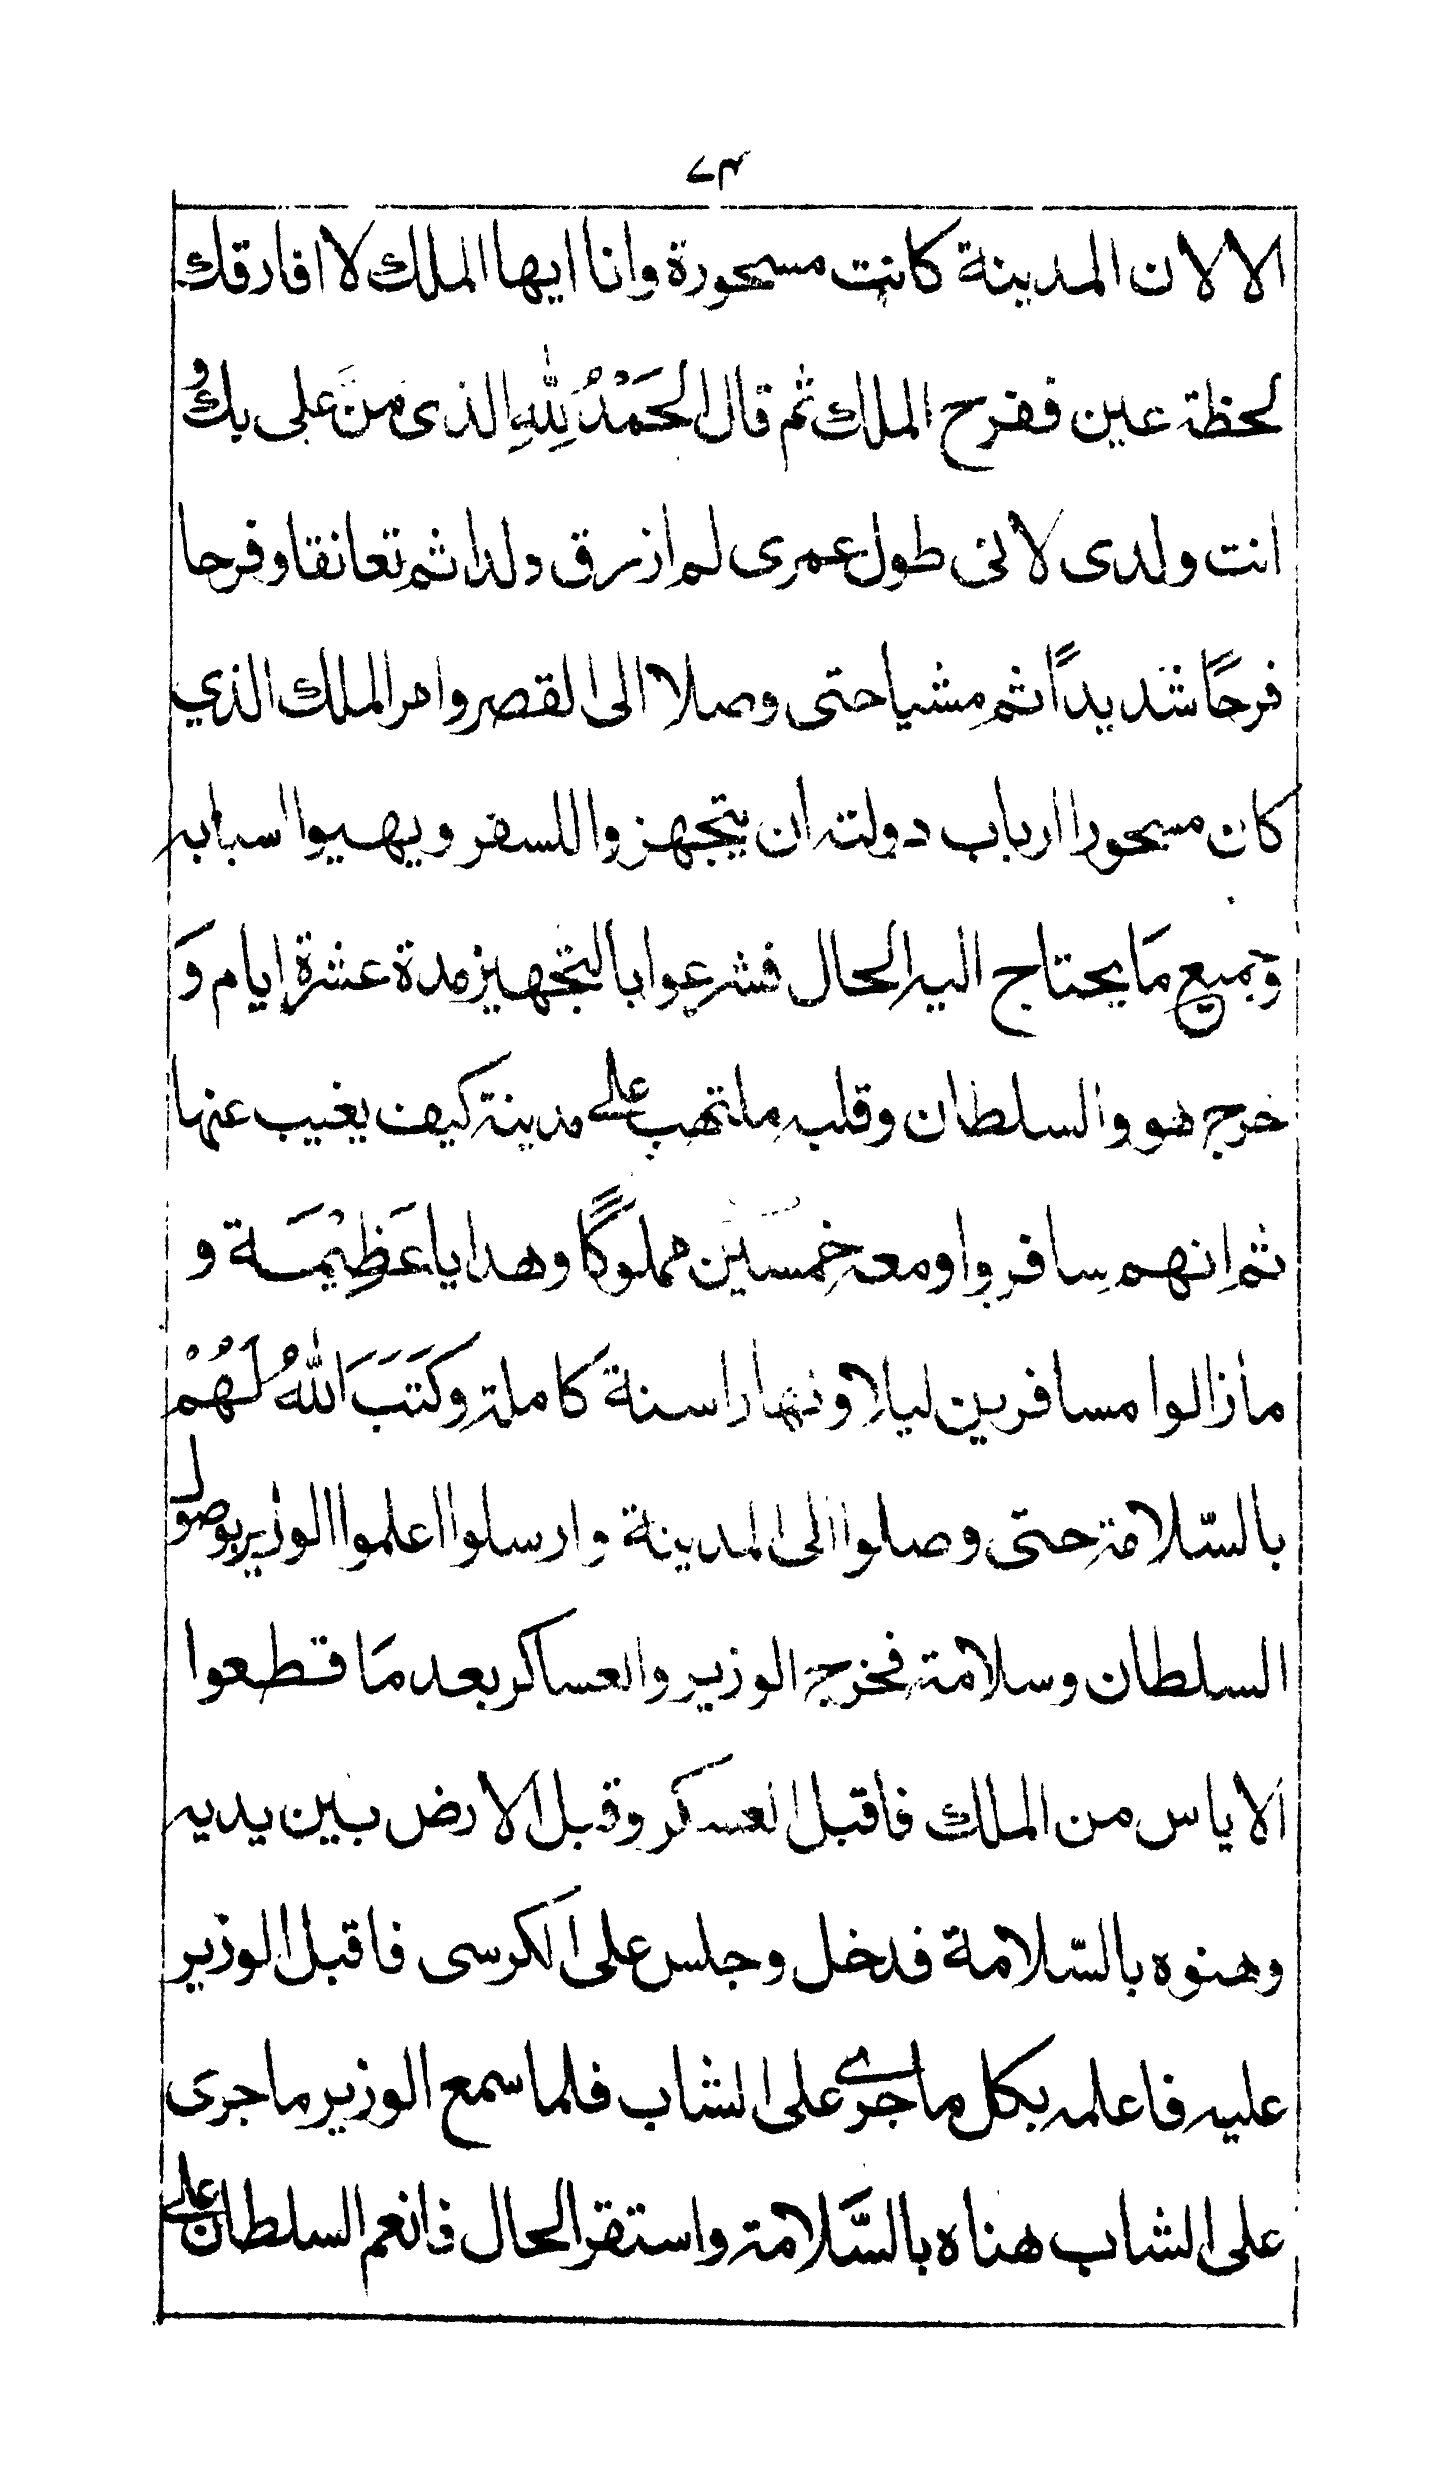 ٧٣
الا لان المدينة كانت مسحورة وانا ايها الملك لا افارقك
لحظة عين ففرح الملك ثم قال الحَمْدُ لِلّٰهِ الذى منَّ على بك وُ
انت ولدى لانى طول عمرى لم ازرق ولدا ثم تعانقا وفرحا
فرحًا شديداً ثم مشيا حتى وصلا الى القصر وامر الملك الذي
كان مسحورا ارباب دولته ان يتجهزوا للسفر ويهيوا اسبابه
وَجميع مَا يحتاج اليه الحال فشرعوا بالتجهيز مدة عشرة ايام وَ
خرج هو والسلطان وقلبه ملتهب على مدينة كيف يغيب عنها
ثم انهم سافروا ومعه خمسَين مملوكًا وهدايا عَظِيْمَة و
مازالوا مسافرين ليلا ونهارا سنة كاملة وكَتَبَ اللّٰهُ لَهُمُ
بالسّلامة حتى وصلوا الى المدينة وارسلوا اعلموا الوزير بوصول
السلطان وسلامة فخرج الوزير والعساكر بعد مَا قطعوا
الاياس من الملك فاقبل العسكر وقبل الارض بين يديه
وهنوه بالسّلامة فدخل وجلس على الكرسى فاقبل الوزير
عليه فاعلمه بكل ماجرى على الشاب فلما سمع الوزير ماجرى
على الشاب هناه بالسَّلامة واستقر الحال فانعم السلطان على